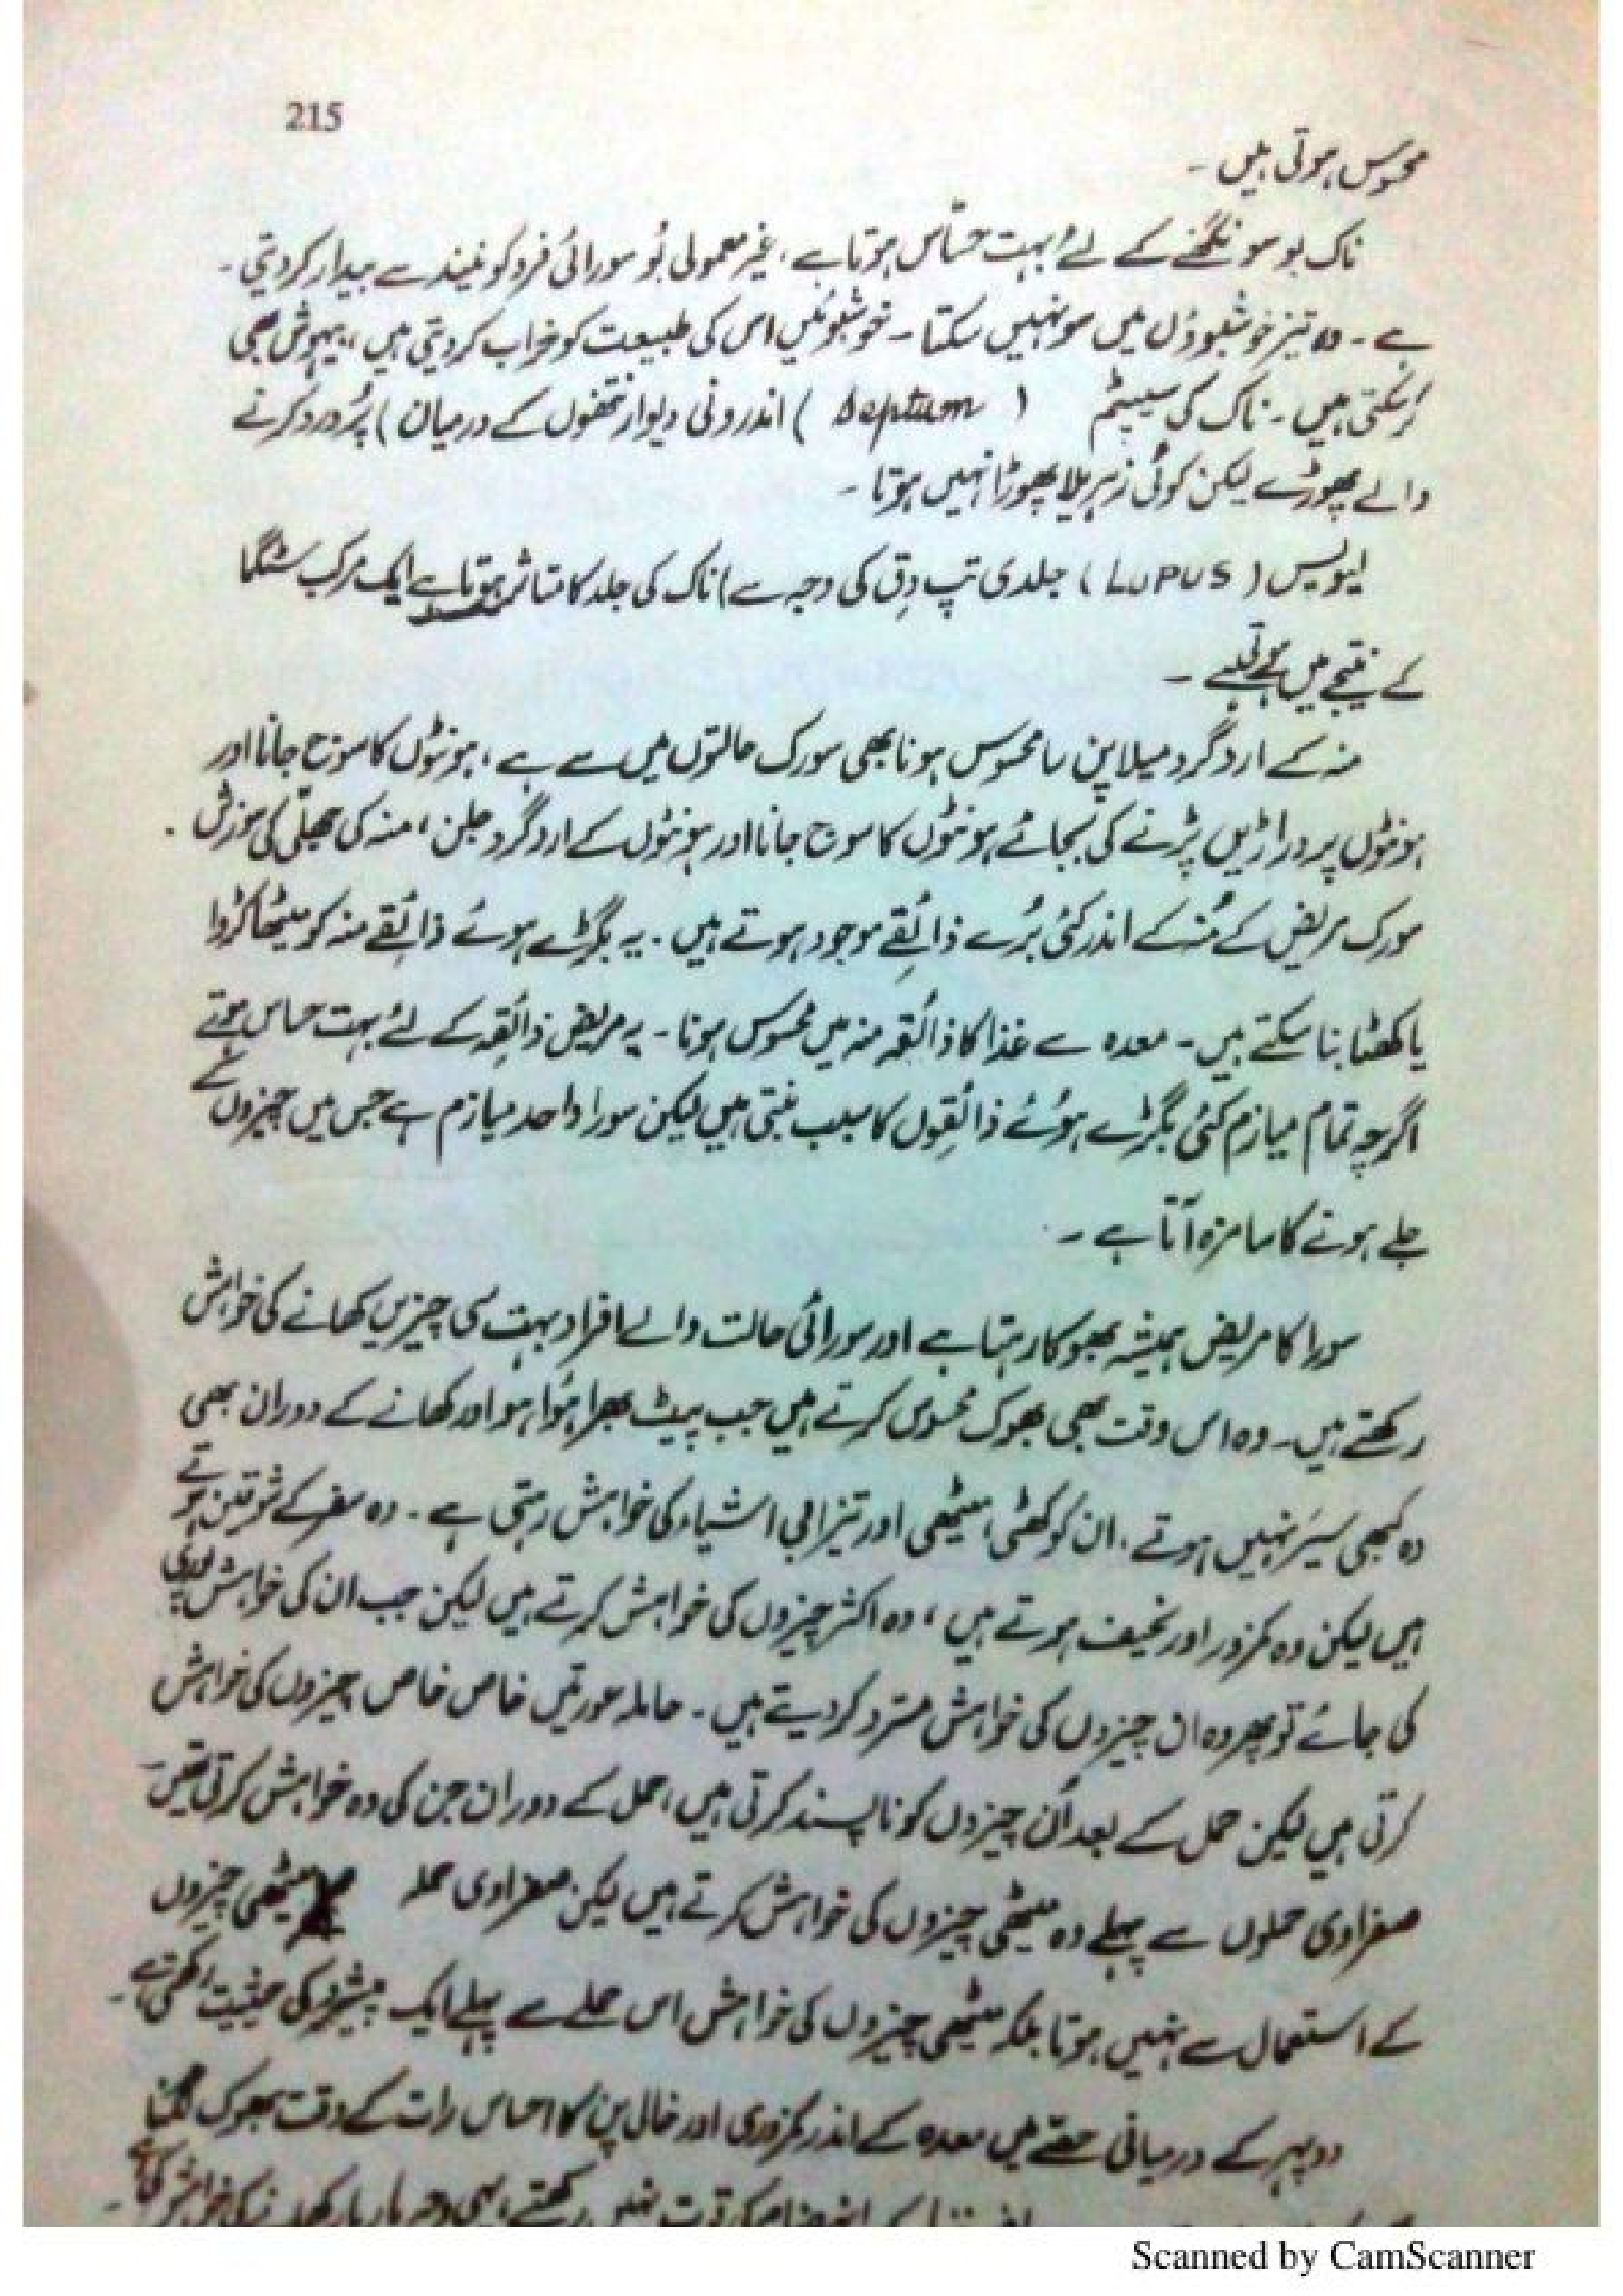 215
محسوس ہوتی ہیں ۔
ناک بو سونگھنے کے لئے بہت حسّاس ہوتا ہے ، غیر معمولی بُو سورائی فرد کو نیند سے بیدار کر دیتی ۔
ہے ۔ وہ تیز خوشبوؤں میں سو نہیں سکتا ۔ خوشبوئیں اس کی طبیعت کو خراب کر دیتی ہیں ، بیہوش بھی
کر سکتی ہیں ۔ ناک کی سیپٹم ( Septum ) اندرونی دیوار نتھنوں کے درمیان ) پُر درد کرنے
والے پھوڑے لیکن کوئی زہریلا پھوڑا نہیں ہوتا ۔
لیوپس ( LUPUS ) جلدی تپ دِق کی وجہ سے ناک کی جلد کا متاثر ہوتا ہے ایک مرکب سٹگما
کے نتیجے میں ہے ۔
منہ کے ارد گرد میلا پن سا محسوس ہونا بھی سورک حالتوں میں سے ہے ، ہونٹوں کا سوج جانا اور
ہونٹوں پر دراڑیں پڑنے کی بجائے ہونٹوں کا سوج جانا اور ہونٹوں کے ارد گرد جلن ، منہ کی جھلّی کی سوزش .
سورک مریض کے مُنہ کے اندر کئی بُرے ذائقے موجود ہوتے ہیں . یہ بگڑے ہوئے ذائقے منہ کو میٹھا کڑوا
یا کھٹا بنا سکتے ہیں ۔ معدہ سے غذا کا ذائقہ منہ میں محسوس ہونا ۔ یہ مریض ذائقہ کے لئے بہت حساس ہوتے
اگرچہ تمام میازم کئی بگڑے ہوئے ذائقوں کا سبب بنتی ہیں لیکن سورا واحد میازم ہے جس میں چیزوں کے
جلے ہونے کا سا مزہ آتا ہے ۔
سورا کا مریض ہمیشہ بھوکا رہتا ہے اور سورائی حالت والے افراد بہت سی چیزیں کھانے کی خواہش
رکھتے ہیں ۔ وہ اس وقت بھی بھوک محسوس کرتے ہیں جب پیٹ بھرا ہوا ہو اور کھانے کے دوران بھی
وہ کبھی سیَر نہیں ہوتے . ان کو کھٹی ، میٹھی اور تیزابی اشیاء کی خواہش رہتی ہے ۔ وہ سفر کے شوقین ہوتے
ہیں لیکن وہ کمزور اور نحیف ہوتے ہیں ، وہ اکثر چیزوں کی خواہش کرتے ہیں لیکن جب ان کی خواہش پوری
کی جائے تو پھر وہ ان چیزوں کی خواہش مسترد کر دیتے ہیں ۔ حاملہ عورتیں خاص خاص چیزوں کی خواہش
کرتی ہیں لیکن حمل کے بعد اُن چیزوں کو ناپسند کرتی ہیں ، حمل کے دوران جن کی وہ خواہش کرتی تھیں ۔
صفراوی حملوں سے پہلے وہ میٹھی چیزوں کی خواہش کرتے ہیں لیکن صفراوی حملہ میٹھی چیزوں
کے استعمال سے نہیں ہوتا بلکہ میٹھی چیزوں کی خواہش اس حملے سے پہلے ایک پیشرو کی حیثیت رکھتی ہے ۔
دوپہر کے درمیانی حصّے میں معدہ کے اندر کمزوری اور خالی پن کا احساس رات کے وقت بھوک لگنا
Scanned by CamScanner